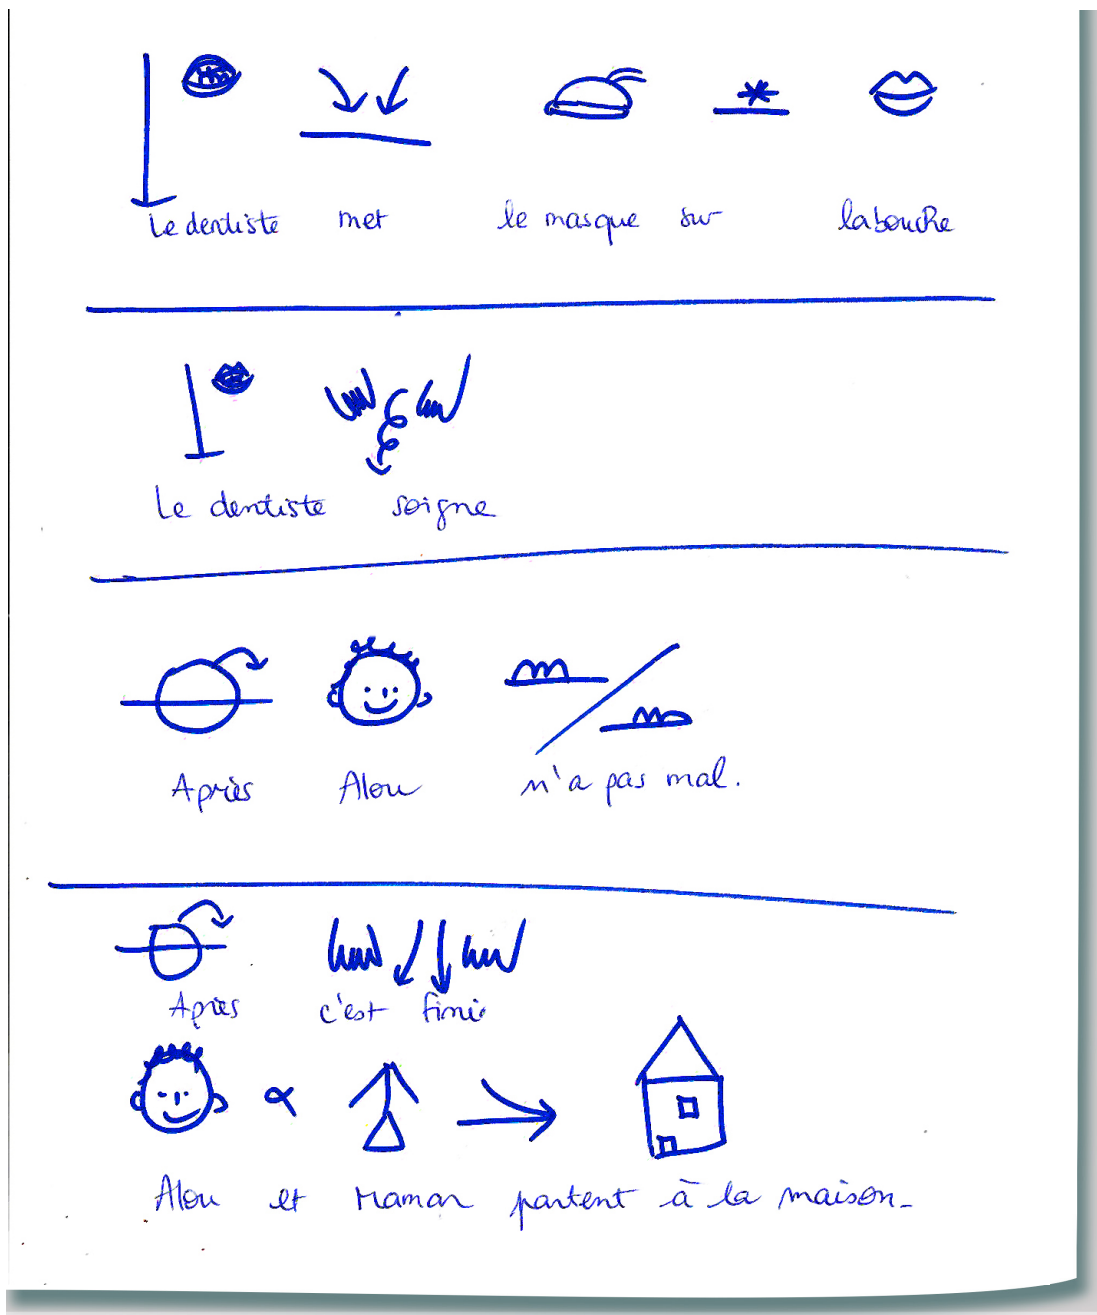 Le dentiste met le masque sur la bouche
Le dentiste soigne
Après Alou n'a pas mal.
Après c'est fini
Alou et Maman partent à la maison.